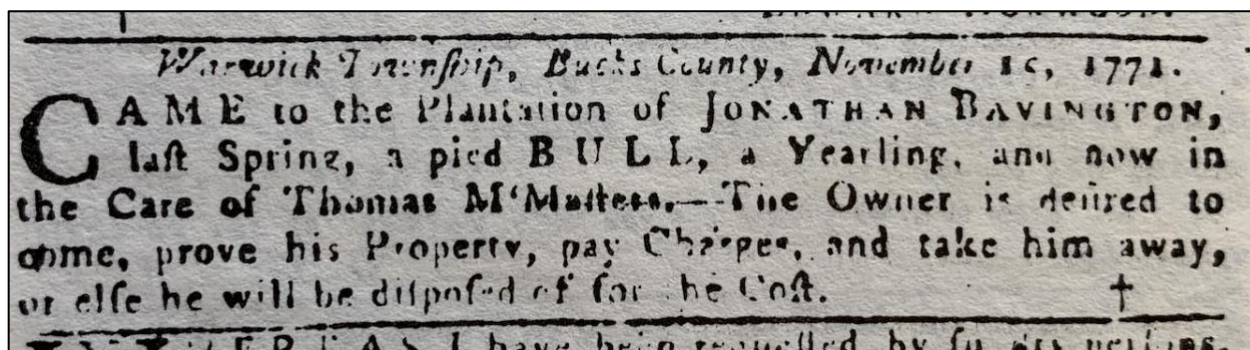 Warwick Township, Bucks County, November 1c, 1771.
CAME to the Plantation of JONATHAN BAVINGTON,
laſt Spring, a pied BULL, a Yearling, and now in
the Care of Thomas M'Maſters.—The Owner is deſired to
come, prove his Property, pay Charges, and take him away,
or elſe he will be diſpoſed of for the Coſt. †
WHEREAS I have been requeſted by